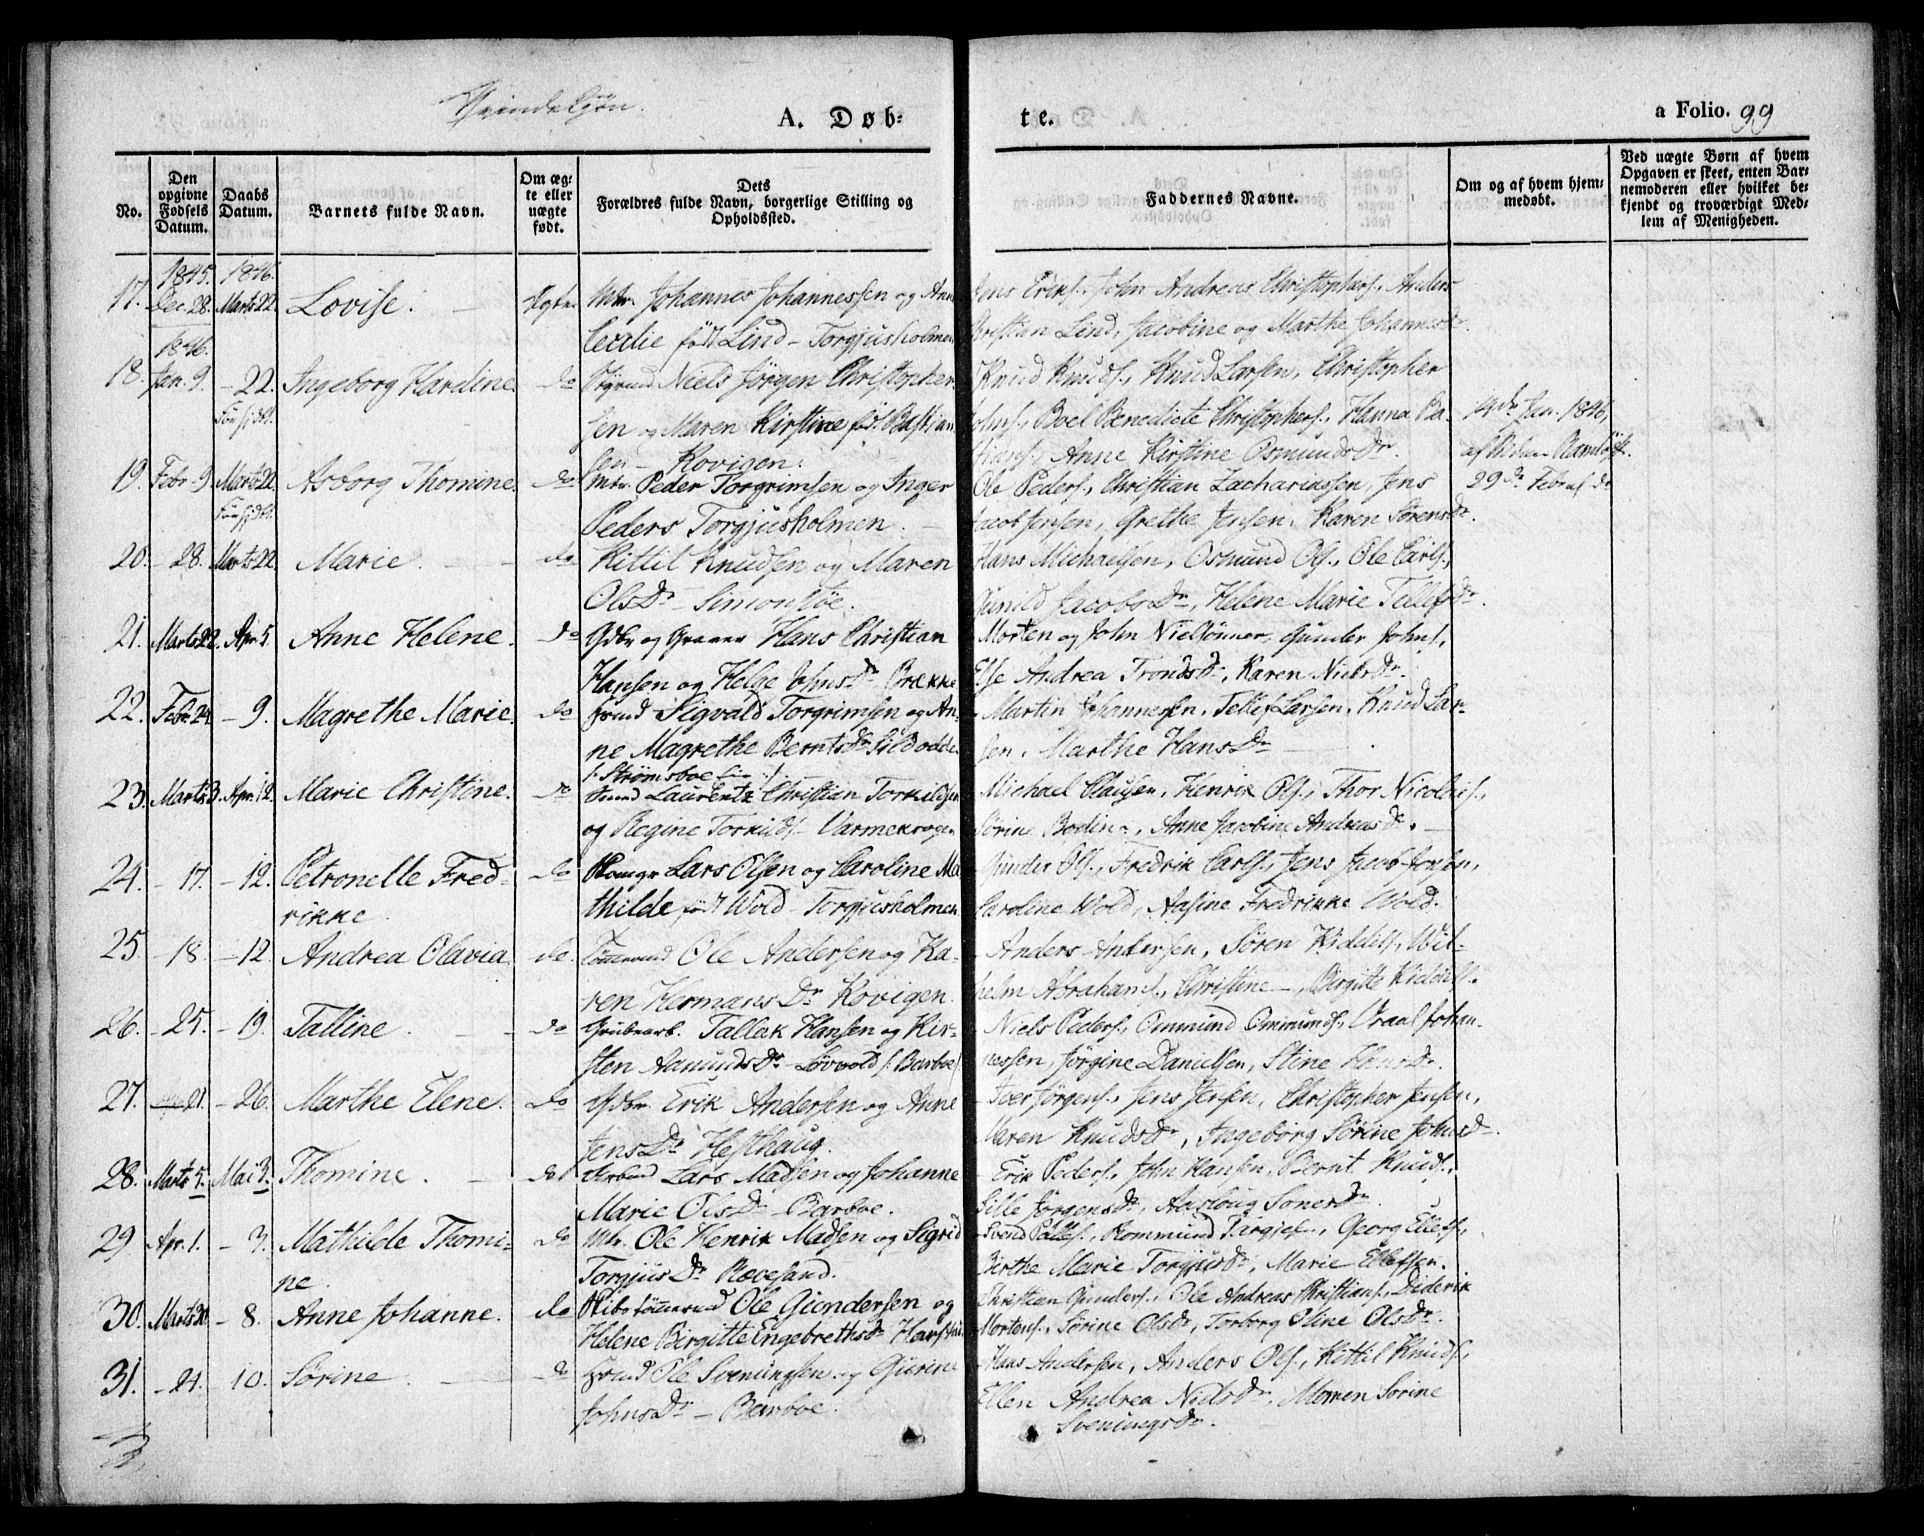 Qvindekjøn.
A. Døb-
te.
a Folio. 99
No.
Den opgivne Fødsels Datum.
Daabs Datum.
Barnets fulde Navn.
Om ægte eller uægte født.
Dets Forældres fulde Navn, borgerlige Stilling og Opholdssted.
Faddernes Navne.
Om og af hvem hjemmedøbt.
Ved uægte Børn af hvem Opgaven er skeet, enten Barnemoderen eller hvilket bekjendt og troværdigt Medlem af Menigheden.
1845. 1846.
17. Dec. 28. Marts 22. Lovise. Ægte. Mtr. Johannes Johannessen og Anne
Cecilie født Lind - Torgjusholmen
Jens Eriks., John Andreas Christophers., Anders
Christian Lind, Jacobine og Marthe Johannesd.
1846.
18. Jan. 9. - 22. Ingeborg Hardine. do Niels Jørgen Christopher-
sen og Maren Kirstine fød. Bastian-
sen - Kovigen.
Knud Knuds., Knud Larsen, Christopher
Johns., Boel Benedicte Christophers., Hanna Ba-
Hans., Anne Kirstine Osmunds Dr.
Jan. 1846,
19. Febr. 9. Marts 22. Asborg Thomine. do Mtr. Peder Torgrimsen og Inger
Peders Torgjusholmen.
Ole Peders., Christian Zachariassen, Jens
Jacob Jensen, Grethe Jensen, Karen Sörens Dr.
29de Febr. af do
20. - 28. Marts 22. Marie. do Kittil Knudsen og Maren
Ols Dr - Simonstöe.
Hans Michaelsen, Osmund Ols., Ole Carls.,
Gunild Jacobs Dr, Helene Marie Tellefs Dr.
21. Marts 22. Apr. 5. Anne Helene. do Gdbr og Graver Hans Christian
Hansen og Helge Johns Dr Brække
Morten og John Nielsönner, Gunder Johns.,
Else Andrea Tronds Dr, Karen Niels Dr.
22. Febr. 24. - 9. Magrethe Marie. do Sigvald Torgrimsen og An-
ne Magrethe Bernts Dr Sildodden
Martin Johannessen, Tellef Larsen, Knud Lar-
sen, Marthe Hans Dr
23. Marts 3. Apr. 12. Marie Christine. do Laurentz Christian Torkildsen
og Regine Torkilds. Varmekrogen
Michael Clausen, Henrik Ols., Thor Nicolais.,
Sörine Bodin, Anne Jacobine Andreas Dr.
24. - 17. - 12. Petronelle Fred- do Lars Olsen og Caroline Ma-
rikke thilde født Wold - Torgjusholmen
Gunder Ols., Fredrik Carls., Jens Jacob Jensen,
Caroline Wold, Aasine Fredrikke Wold.
25. - 18. - 12. Andrea Olavia. do. Ole Andersen og Ka-
ren Hermans Dr Kovigen.
Anders Andersen, Sören Kiddils., Wil-
helm Abrahams., Christine -, Birgitte Kiddils.
26. - 25. - 19. Talline. do Grubearb. Tallak Hansen og Kir-
sten Aamunds Dr Lövold /: Barboe /
Niels Peders., Ommund Ommunds., Oraal Johan-
nessen, Jörgine Danielsen, Stine Hans Dr.
27. 21. - 26. Marthe Elene. do Gdbr Erik Andersen og Anne
Jens Dr Hesthaug.
Iver Jörgens., Jens Jensen, Christopher Jensen,
Maren Knuds Dr, Ingeborg Sörine Johns Dr.
28. Marts 5. Mai 3. Thomine. do Lars Madsen og Johanne
Marie Ols Dr Barboe.
Erik Peders., John Hansen, Bernt Knuds.,
Sille Jörgens Dr, Aaslaug Dr
29. Apr. 1. - 3. Mathilde Thomi- do Mtr. Ole Henrik Madsen og Sigrid
ne. Torgjus Dr Rævesand.
Svend Palles., Rommund Targies., Georg Ellefs.,
Birthe Marie Torgjus Dr, Marie Ellefsen.
30. Marts 20. - 8. Anne Johanne. do Skibstømmermd Ole Gundersen og
Helene Birgitte Engebreths Dr
Christian Gunders., Ole Andreas Christians., Diderik
Mortens., Sörine Ols Dr, Torborg Oline Ols Dr.
31. - 21. - 10. Sörine. do Ole Sveningsen og Gurine
Johns Dr - Barboe.
Hans Andersen, Anders Ols., Kittil Knuds.,
Ellen Andrea Niels Dr, Maren Sörine
Svenings Dr.